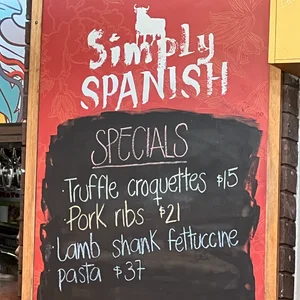 Simply
SPANISH
SPECIALS
· Truffle croquettes $15
· Pork ribs $21
· Lamb shank fettuccine
pasta $37